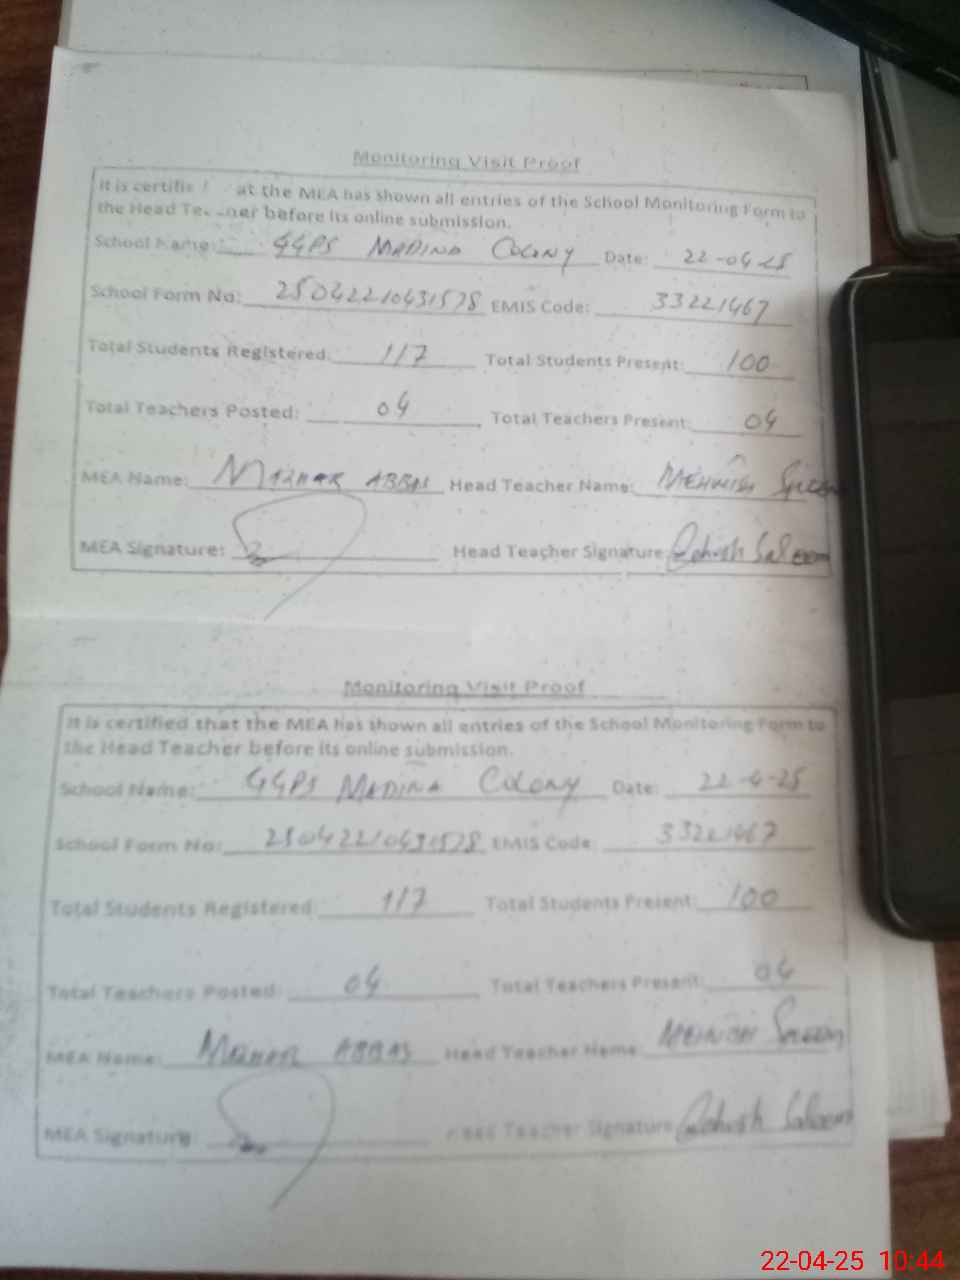 Monitoring Visit Proof
It is certifie at the MEA has shown all entries of the School Monitoring Form to
the Head Te ner before its online submission.
School Name: GGPS MADINA COLONY Date: 22-04-25
School Form No: 25042210431578 EMIS Code: 33221467
Total Students Registered: 117 Total Students Present: 100
Total Teachers Posted: 04 Total Teachers Present: 04
MEA Name: MAZHAR ABBAS Head Teacher Name: MEHWISH Saleem
MEA Signature: Head Teacher Signature: Saleem
Monitoring Visit Proof
It is certified that the MEA has shown all entries of the School Monitoring Form to
the Head Teacher before its online submission.
School Name: GGPS MADINA COLONY Date: 22-4-25
School Form No: 25042210431578 EMIS Code: 33221467
Total Students Registered: 117 Total Students Present: 100
Total Teachers Posted: 04 Total Teachers Present: 04
MEA Name: MAZHAR ABBAS Head Teacher Name: MEHWISH Saleem
MEA Signature: Head Teacher Signature: Saleem
22-04-25 10:44